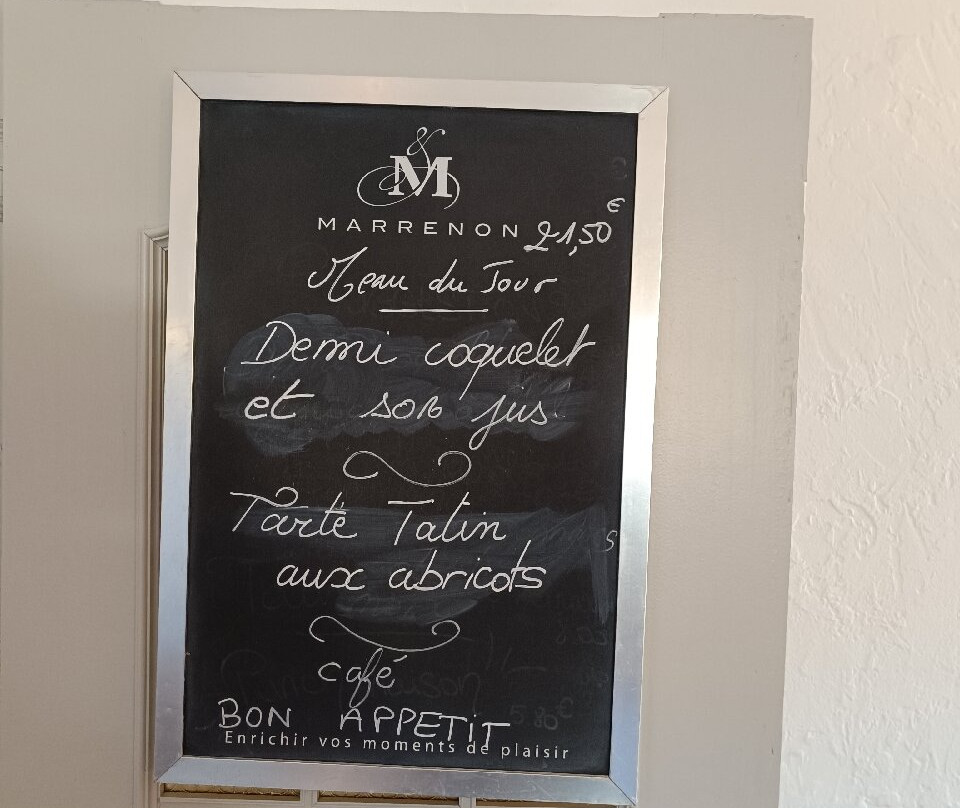 M
MARRENON
21,50€
Menu du Jour
Demi coquelet
et son jus.
Tarte Tatin
aux abricots
café
BON APPETIT
Enrichir vos moments de plaisir